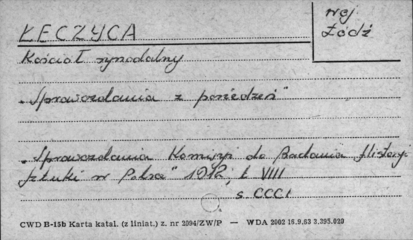 ŁĘCZYCA
woj.
Łódź
Kościół synodalny
„Sprawozdania z posiedzeń"
„Sprawozdania Komisji do Badania Historji
Sztuki w Polsce" 1912, t. VIII
s. CCCI
CWD B-15b Karta katal. (z liniat.) z. nr 2094/ZW/P — WDA 2002 16.9.63 2.295.020